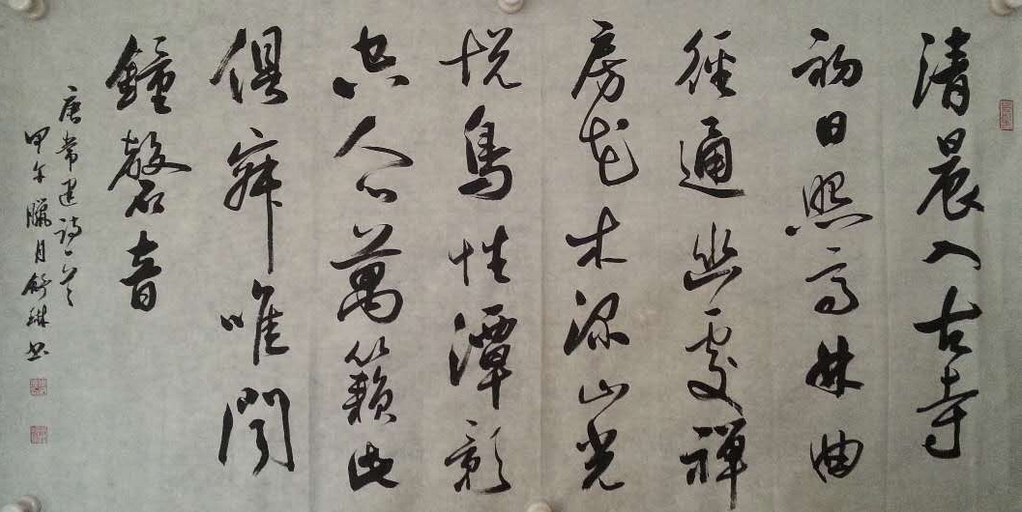 清晨入古寺
初日照高林曲
徑通幽處禪
房花木深山光
悦鳥性潭影
空人心萬籟此
俱寂唯聞
鐘磬音
唐常建詩一首
甲午臘月舒琳書